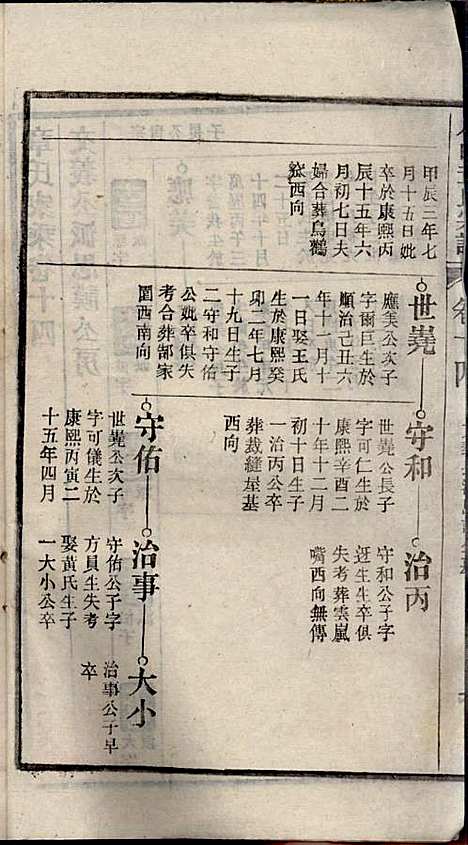 甲辰二年七
月十五日妣
卒於康熙丙
辰十五年六
月初七日夫
婦合葬烏鶴
㟁西向
世嵬
應美公次子
字爾巨生於
順治己丑六
年十月十
一日娶王氏
生於康熙癸
卯二年七月
十九日生子
二守和守佑
公妣卒俱失
考合葬鄒家
圍西南向
守和
世嵬公長子
字可仁生於
康熙辛酉二
十年十二月
初十日生子
一治丙公卒
葬裁縫屋基
西向
治丙
守和公子字
迓生生卒俱
失考葬雲嵐
嘴西向無傳
守佑
世嵬公次子
字可儀生於
康熙丙寅二
十五年四月
治事
守佑公子字
方貝生失考
娶黃氏生子
一大小公卒
大小
治事公子早
卒